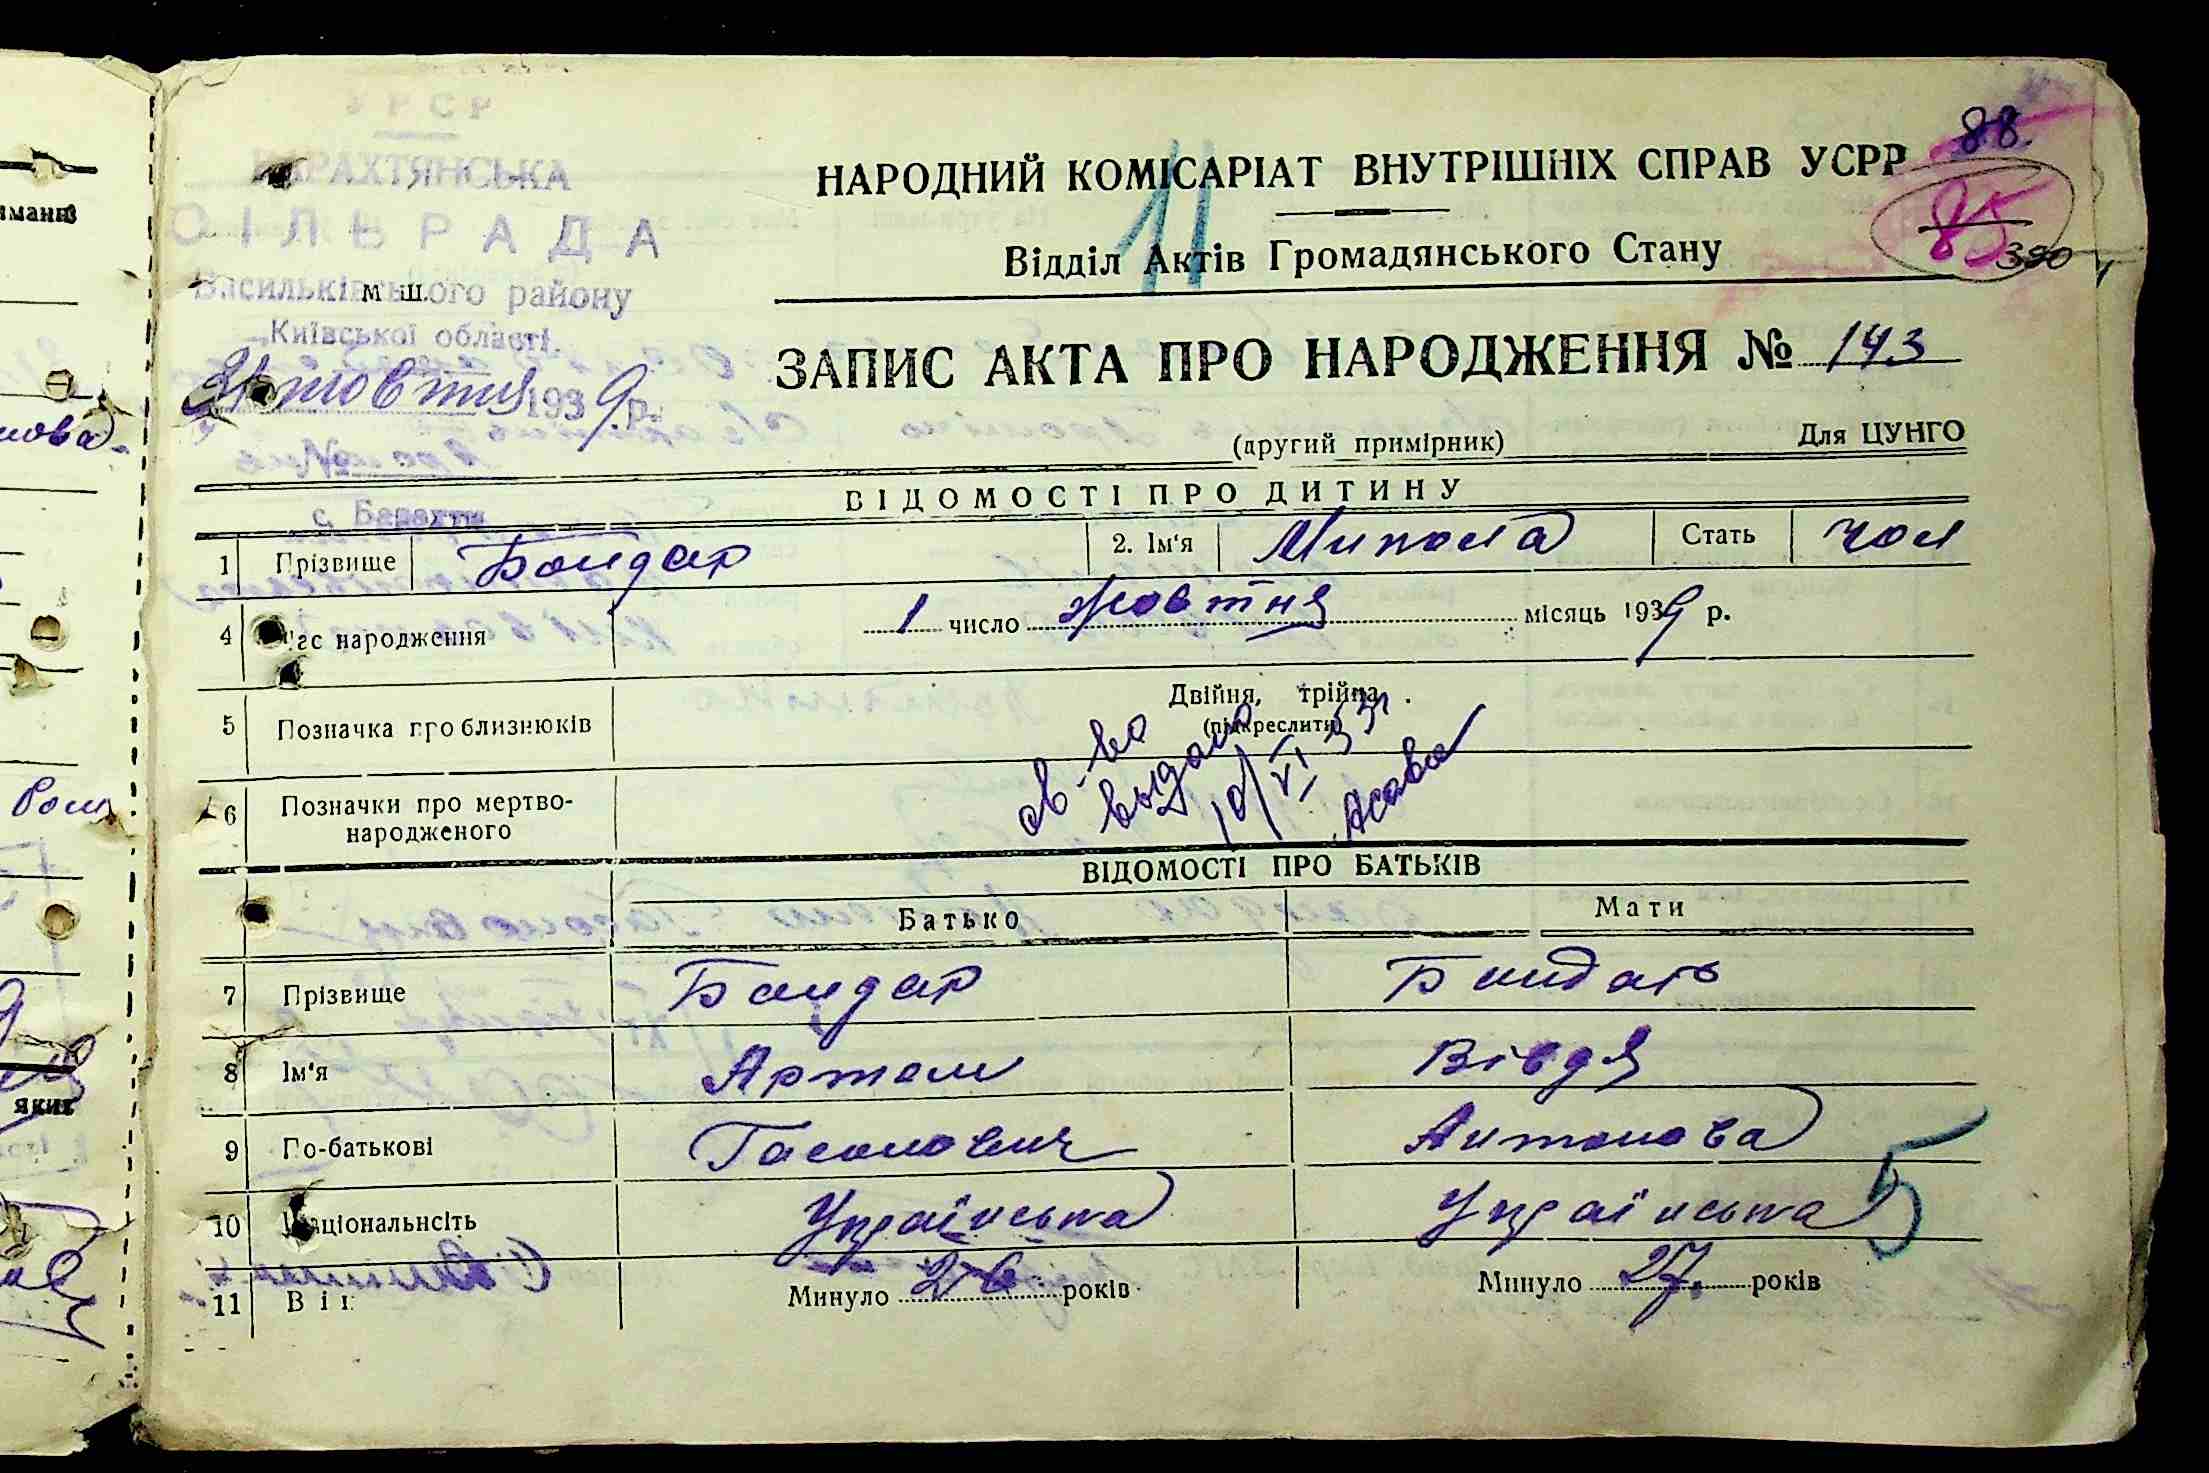 УРСР
БАРАХТЯНСЬКА
СІЛЬРАДА
Васильківського району
Київської області.
м ш.
31 жовтня 1939 р.
НАРОДНИЙ КОМІСАРІАТ ВНУТРІШНІХ СПРАВ УСРР
88.
85
11
Відділ Актів Громадянського Стану
ЗАПИС АКТА ПРО НАРОДЖЕННЯ № 143
(другий примірник) Для ЦУНГО
ВІДОМОСТІ ПРО ДИТИНУ
с Барахти
1 Прізвище Бондар 2. Ім'я Микола Стать чол
4 Час народження 1 число жовтня місяць 1939 р.
5 Позначка про близнюків Двійня, трійня.
(підкреслити)
св-во
выдано
10/VI 55
6 Позначки про мертво-
народженого
ВІДОМОСТІ ПРО БАТЬКІВ
Батько Мати
7 Прізвище Бондар Бондарь
8 Ім'я Артем Вівдя
9 По-батькові Антонова
10 Національнсіть Українська Українська
5
11 Вік Минуло 26 років Минуло 27. років
яких